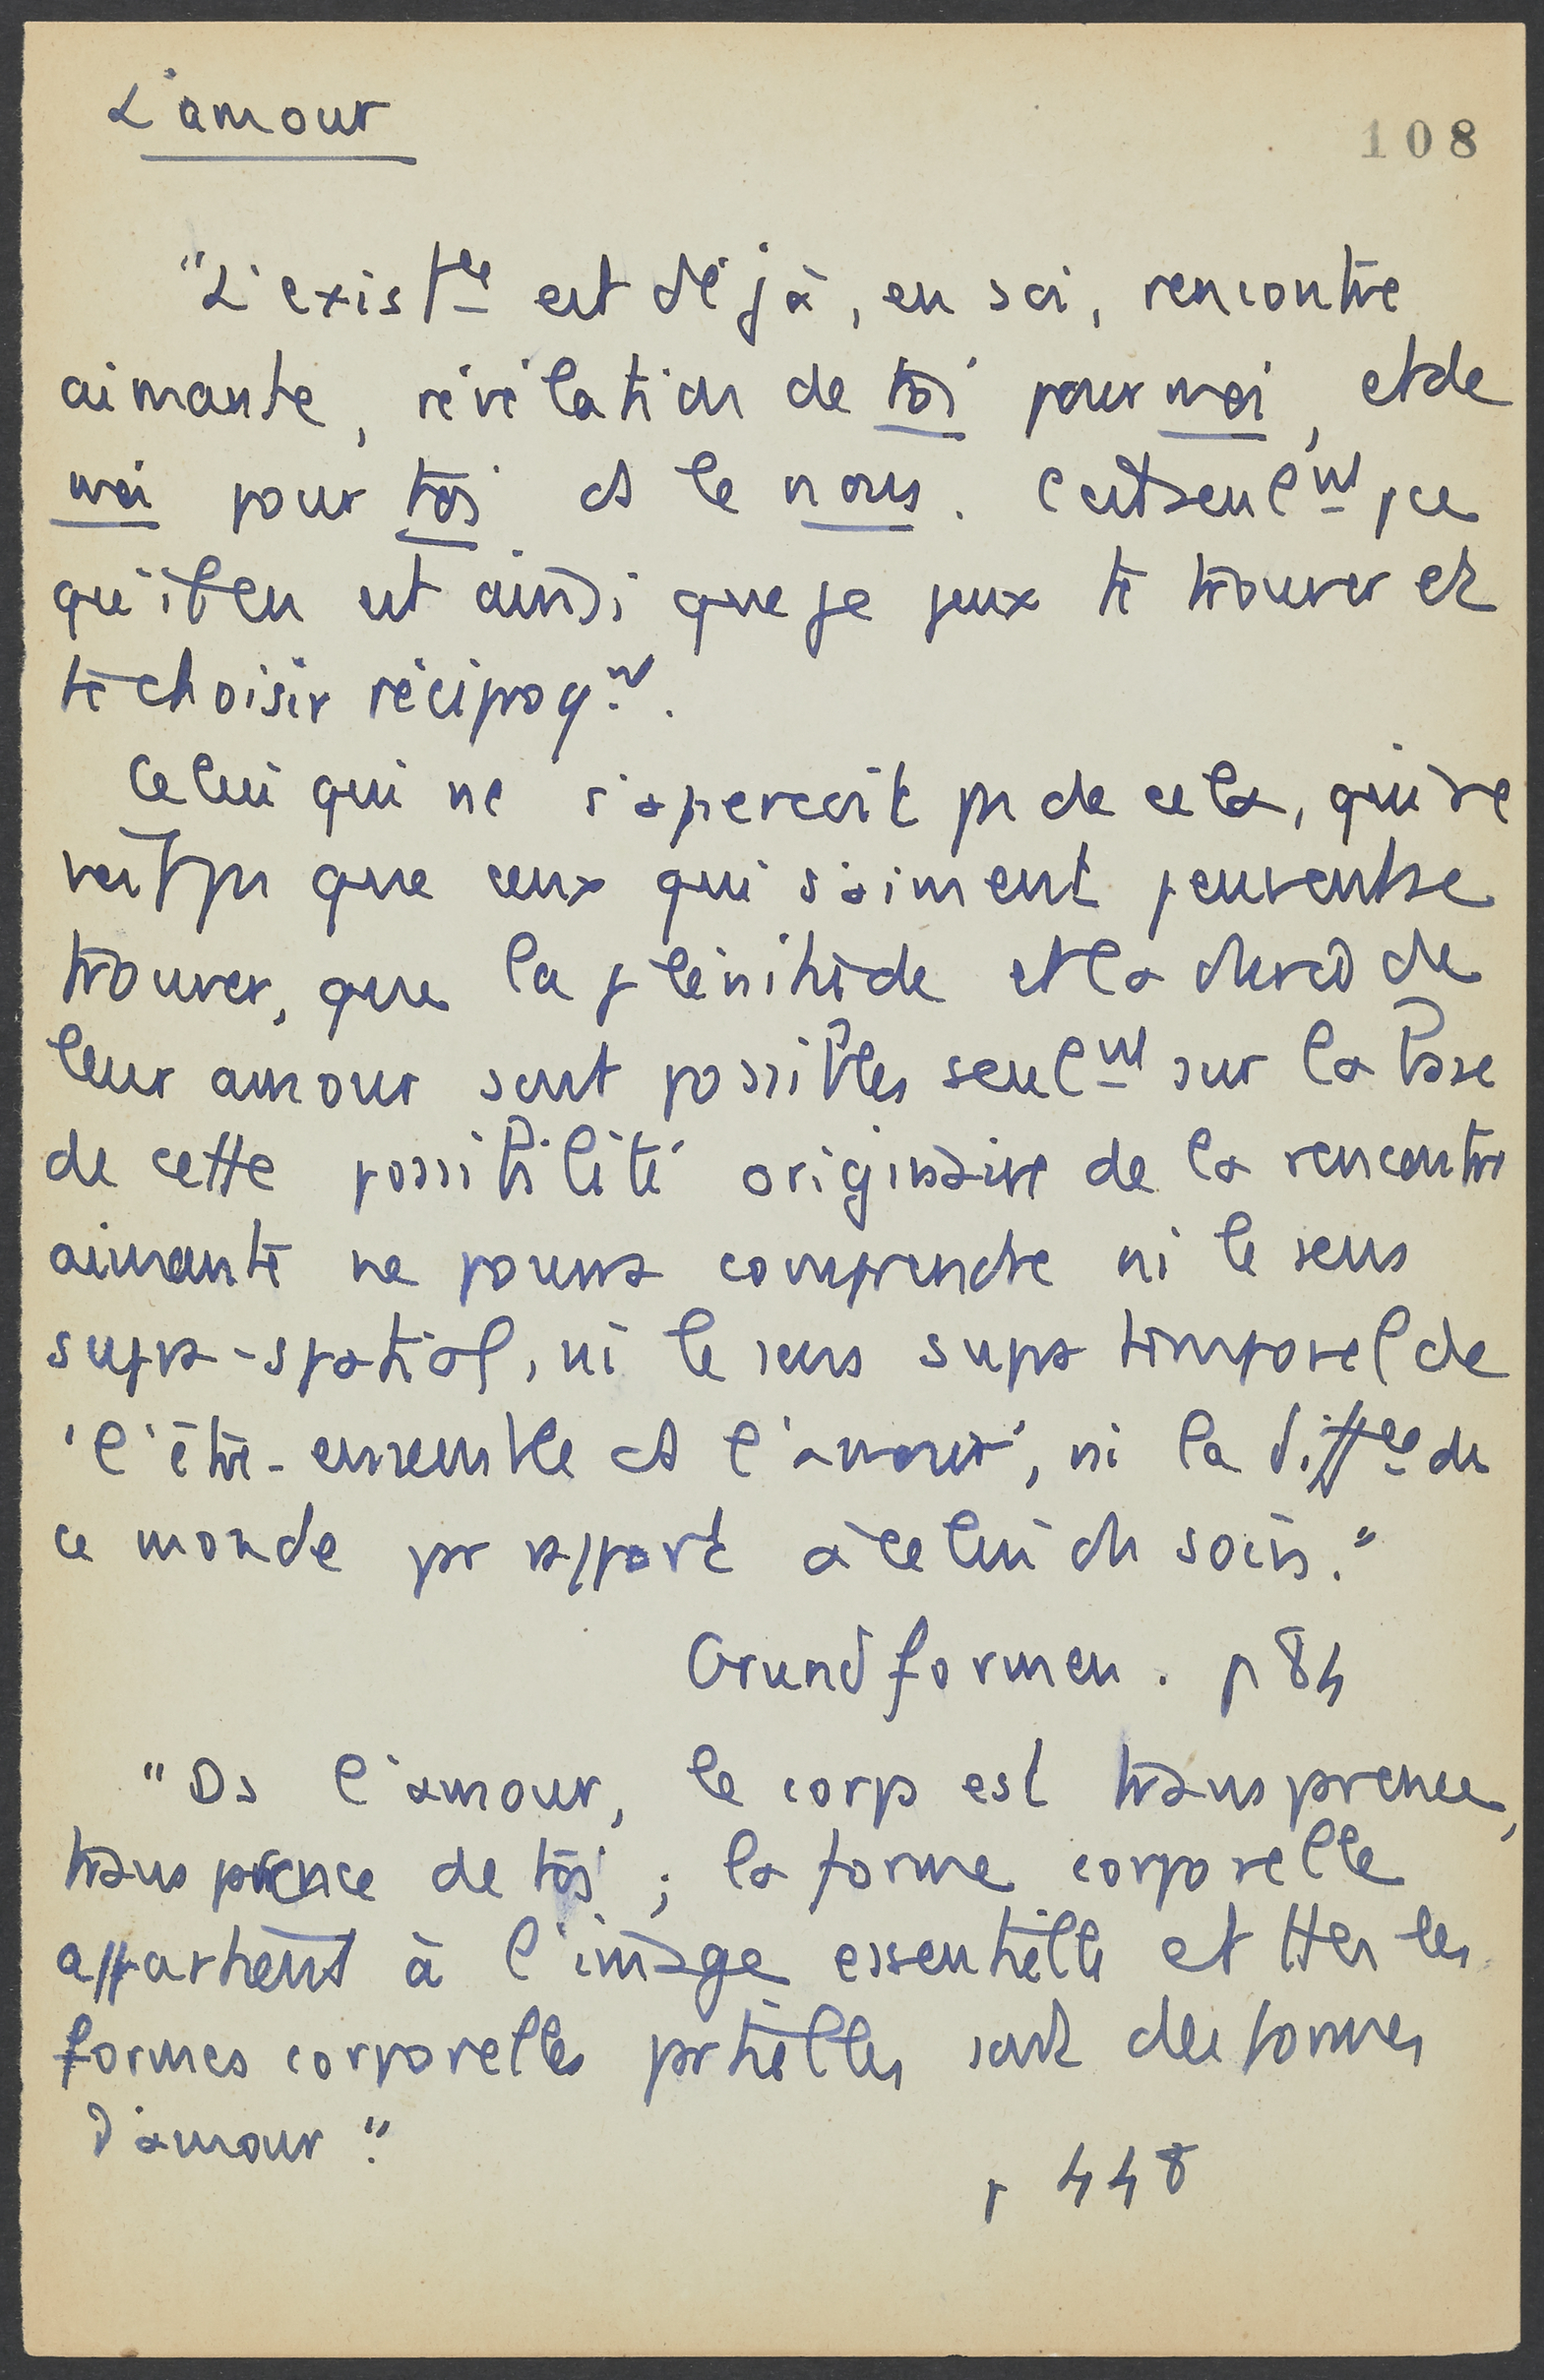 L'amour
108
"L'existce est déjà, en soi, rencontre
aimante, révélation de toi pour moi, et de
moi pour toi ds le nous. C'est seulmt pce
qu'il en est ainsi que je peux te trouver et
te choisir réciproqmt.
Celui qui ne s'aperçoit ps de cela, qui ne
voit ps que ceux qui s'aiment peuvent se
trouver, que la plénitude et la durée de
leur amour sont possibles seulmt sur la base
de cette possibilité originaire de la rencontre
aimante ne pourra comprendre ni le sens
supra-spatial, ni le sens supra temporel de
'l'être-ensemble ds l'amour', ni la diffce de
ce monde pr rapport à celui du soin."
Grundformen. p 84
"Ds l'amour, le corps est transprence,
transprence de toi ; la forme corporelle
appartient à l'image essentielle et ttes les
formes corporelles prtielles sont des formes
d'amour".
p 448